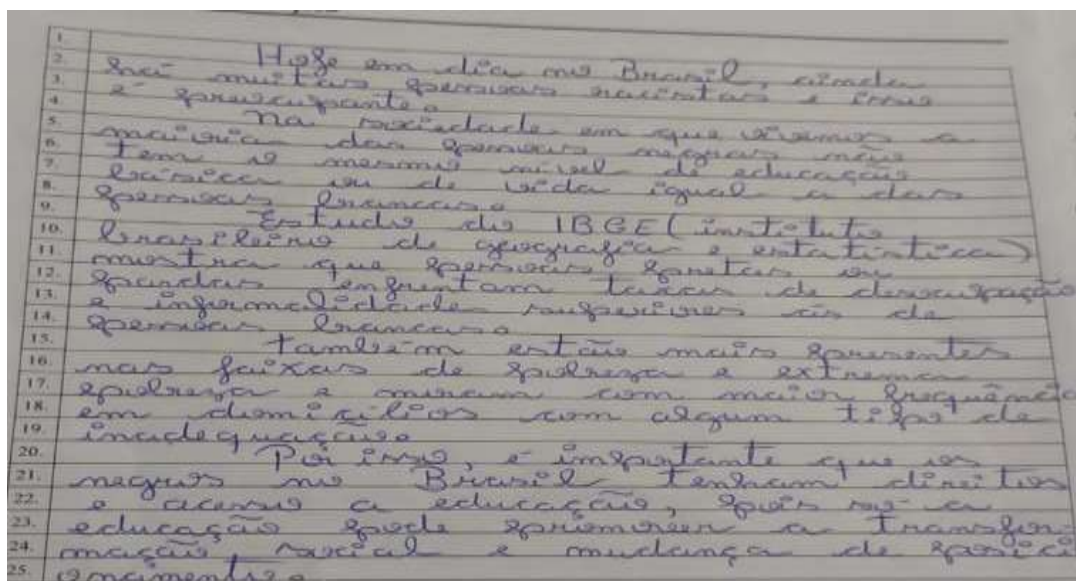 1.
2. Hoje em dia no Brasil, ainda
3. há muitas pessoas racistas e isso
4. é preocupante.
5. Na sociedade em que vivemos a
6. maioria das pessoas negras não
7. tem o mesmo nível de educação
8. básica ou de vida igual a das
9. pessoas brancas.
10. Estudo do IBGE (instituto
11. brasileiro de geografia e estatística)
12. mostra que pessoas pretas ou
13. pardas enfrentam taxas de desocupação
14. e informalidade superiores às de
pessoas brancas.
15. Também estão mais presentes
16. nas faixas de pobreza e extrema
17. pobreza e moram com maior frequência
18. em domicílios com algum tipo de
19. inadequação.
20. Por isso, é importante que os
21. negros no Brasil tenham direitos
22. e acesso a educação, pois só a
23. educação pode a transfor
24. mação, social e mudança de posici
25. onamento.